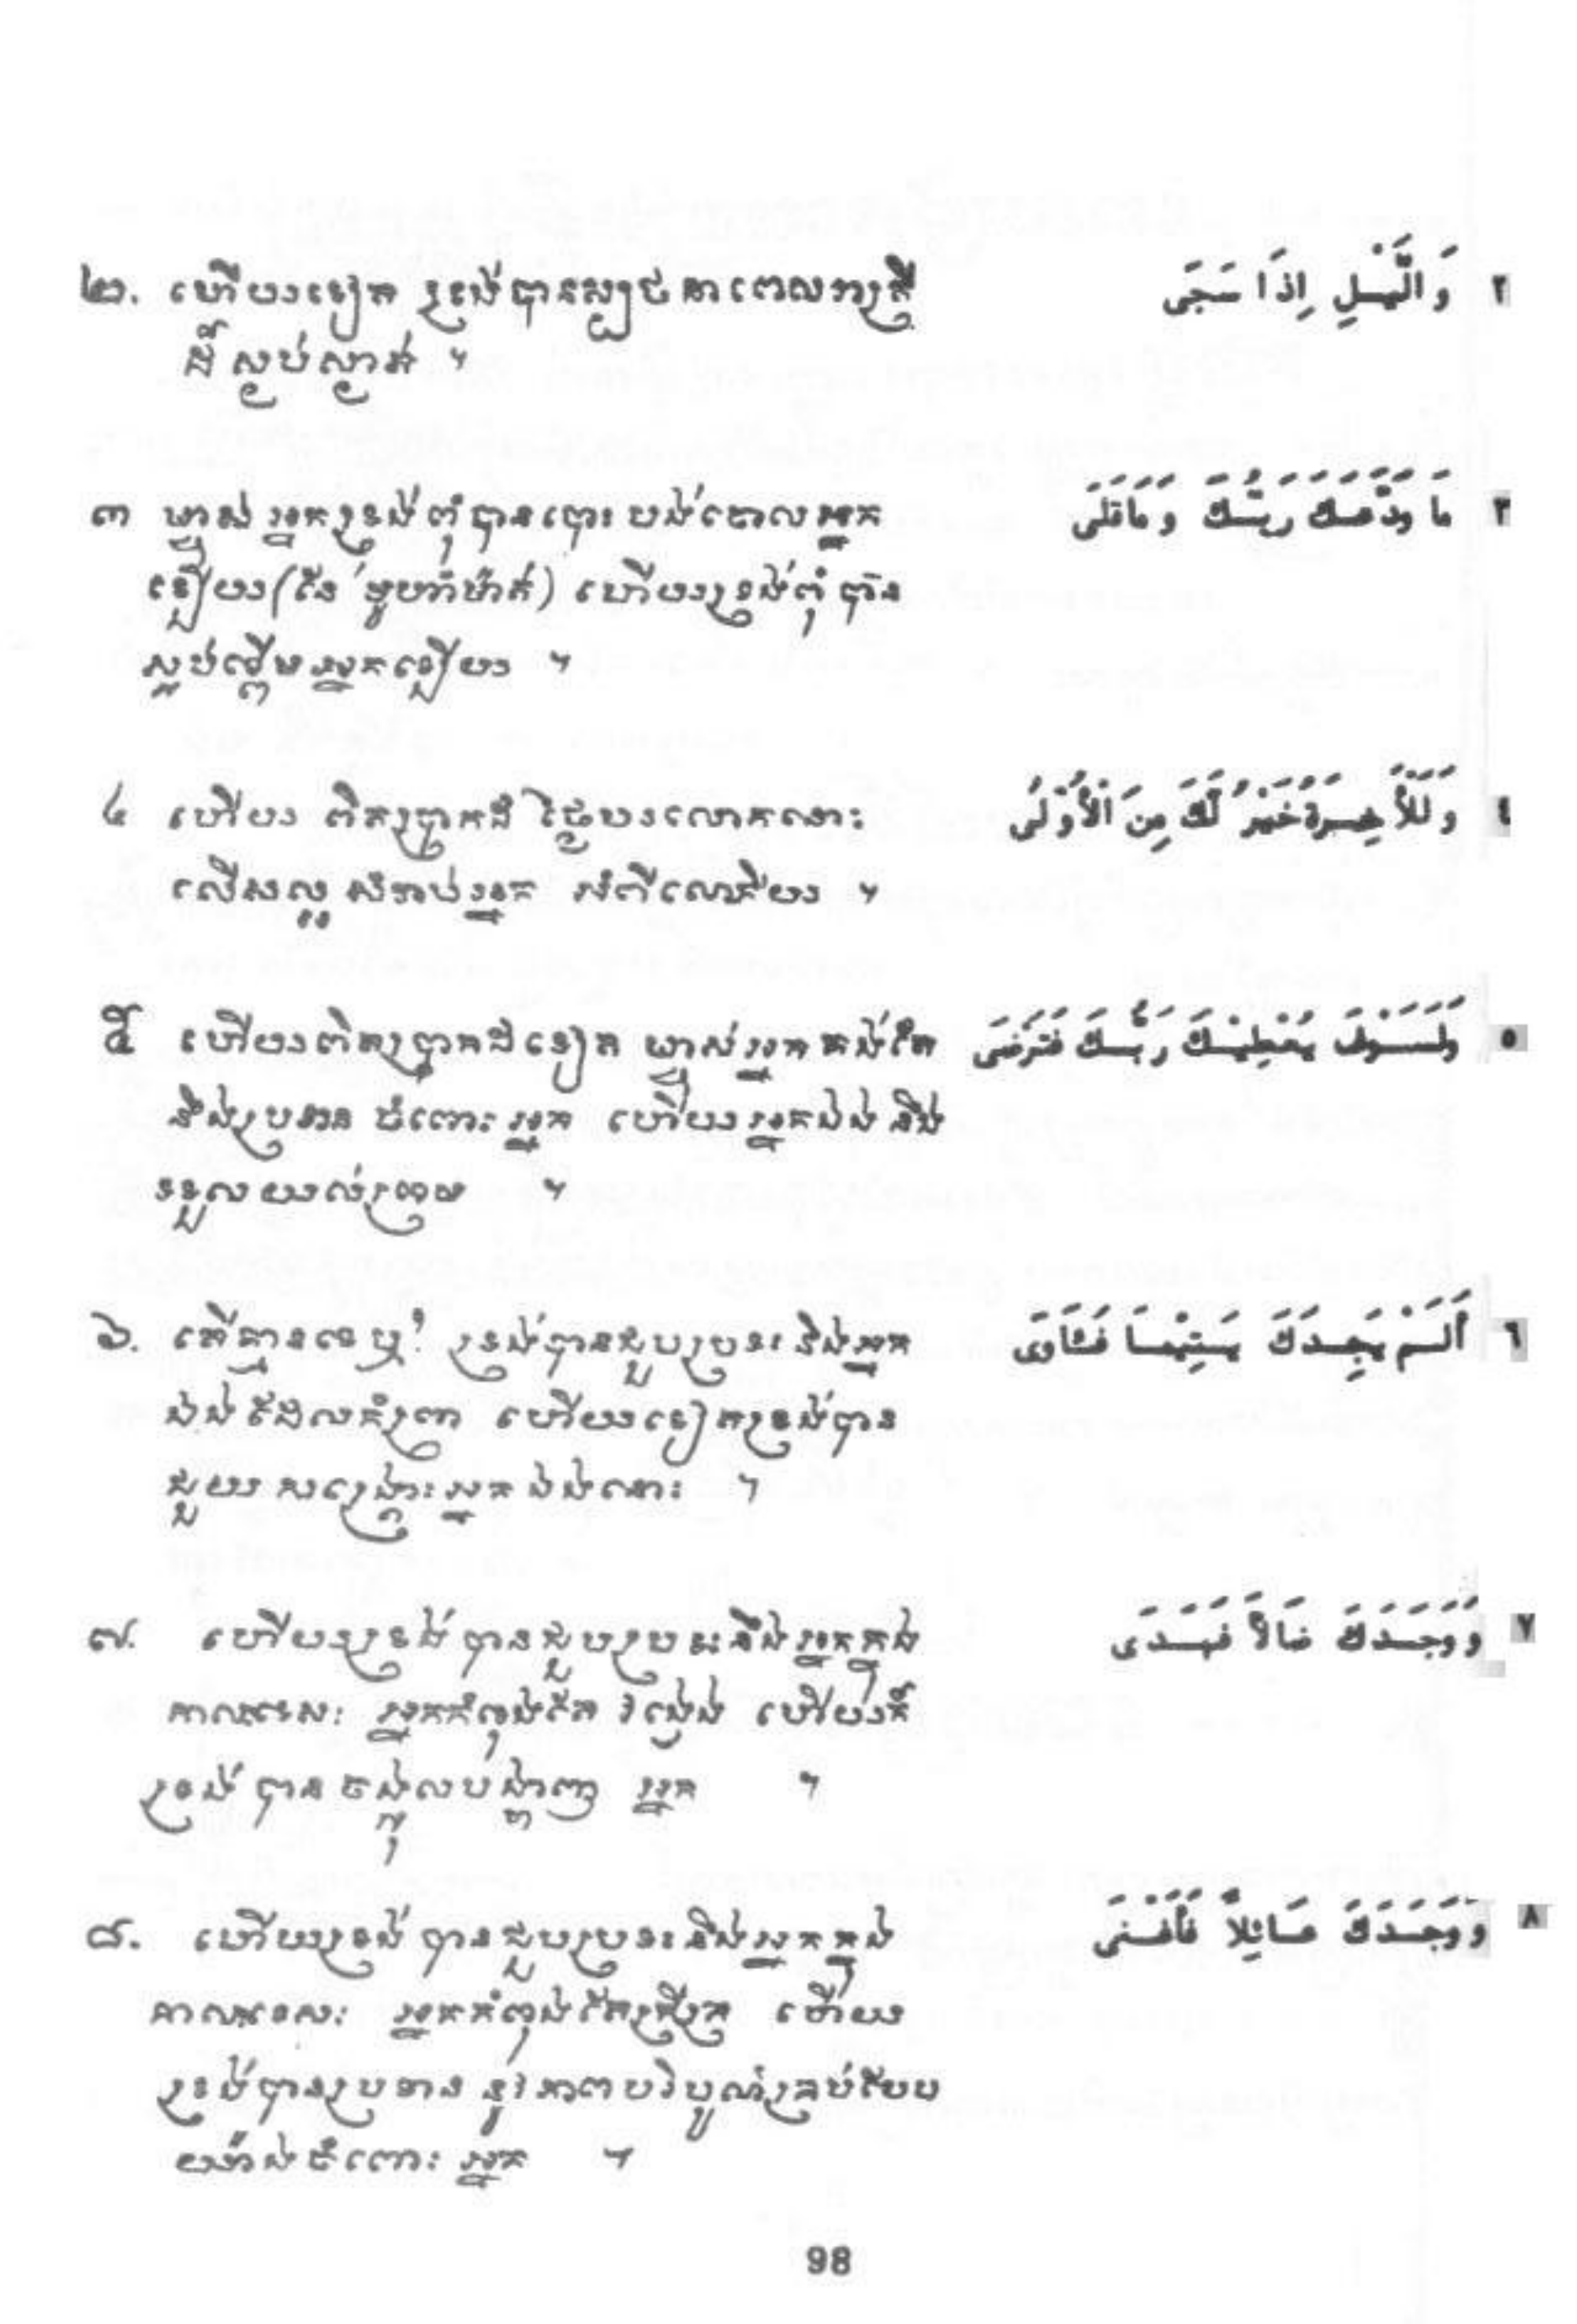 ២. ហើយទៀត ទ្រង់បានស្បថ នាពេលរាត្រី
ដ៏ ស្ងប់ស្ងាត់ ។
وَالَّيْلِ اِذَا سَجَى ٢
៣ ម្ចាស់ អ្នកទ្រង់ ពុំ បាន បោះ បង់ចោល អ្នក
ឡើយ (នែ មូហាំម៉ាត់) ហើយទ្រង់ពុំ បាន
ស្អប់ខ្ពើមអ្នកឡើយ ។
مَا وَدَّعَكَ رَبُّكَ وَمَاقَلَى ٣
៤ ហើយ ពិតប្រាកដ ថ្ងៃបរលោកណោះ
លើសលុប សំរាប់អ្នក អំពីលោកីយ ។
وَلَلْأَخِرَةُ خَيْرٌ لَكَ مِنَ الْأُوْلَى ٤
៥ ហើយពិតប្រាកដទៀត ម្ចាស់អ្នក គង់តែ
នឹងប្រទាន ចំពោះអ្នក ហើយអ្នកឯង នឹង
ទទួល យល់ព្រម ។
وَلَسَوْفَ يُعْطِيْكَ رَبُّكَ فَتَرْضَى ٥
៦. តើគ្មានទេឬ? ទ្រង់បានជួបប្រទះ នឹងអ្នក
ឯង ដែលកំព្រា ហើយទៀតទ្រង់បាន
ជួយ សង្គ្រោះអ្នក ឯងណោះ ។
أَلَمْ يَجِدْكَ يَتِيْمًا فَئَاوَى ٦
៧. ហើយទ្រង់ បានជួបប្រទះនឹងអ្នកក្នុង
កាលៈទេសៈ អ្នកកំពុងតែ វង្វេង ហើយក៏
ទ្រង់ បាន ចង្អុលបង្ហាញ អ្នក ។
وَوَجَدَكَ ضَالًّا فَهَدَى ٧
៨. ហើយទ្រង់ បានជួបប្រទះនឹងអ្នកក្នុង
កាលៈទេសៈ អ្នកកំពុងតែក្រីក្រ ហើយ
ទ្រង់បានប្រទាន នូវភាពបរិបូណ៌គ្រប់បែប
យ៉ាងចំពោះ អ្នក ។
وَوَجَدَكَ عَائِلًا فَأَغْنَى ٨
98